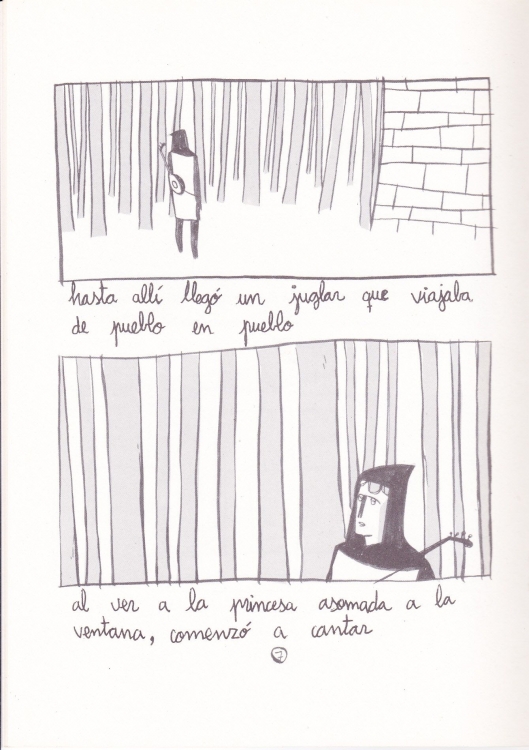 hasta allí llegó un juglar que viajaba
de pueblo en pueblo
al ver a la princesa asomada a la
ventana, comenzó a cantar
7